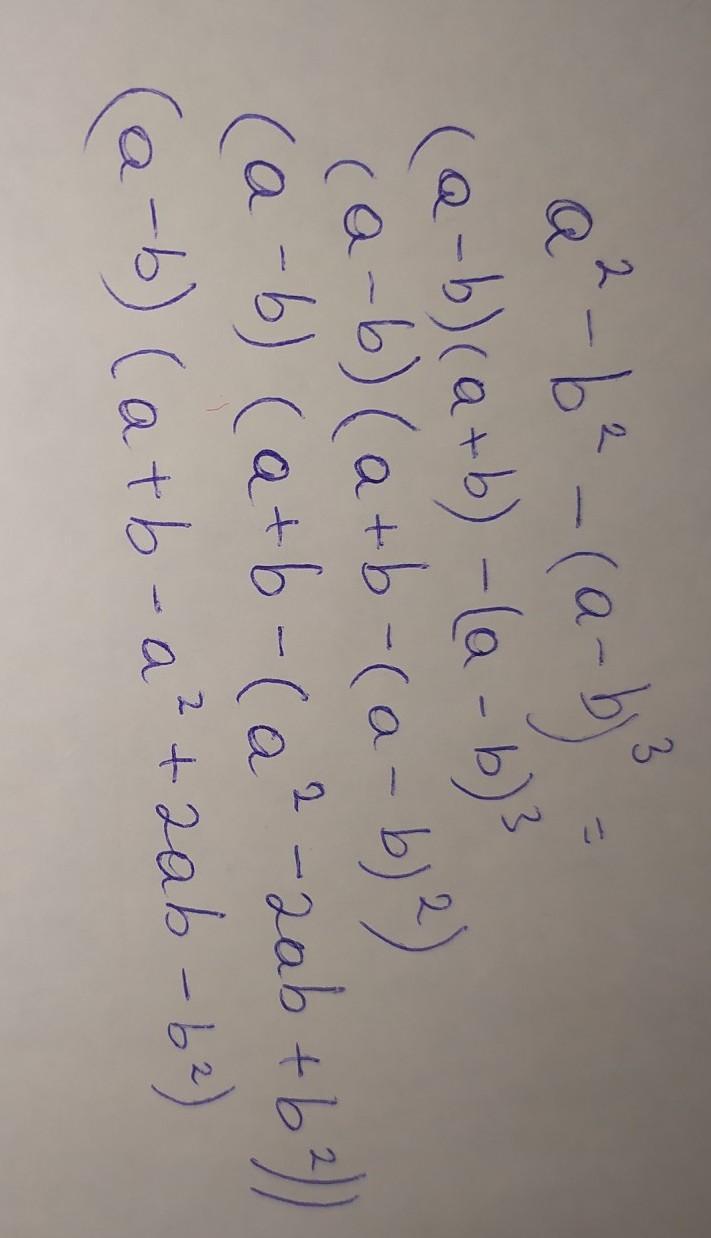 a² - b² - (a - b)³ =
(a - b)(a + b) - (a - b)³
(a - b)(a + b - (a - b)²)
(a - b)(a + b - (a² - 2ab + b²))
(a - b)(a + b - a² + 2ab - b²)